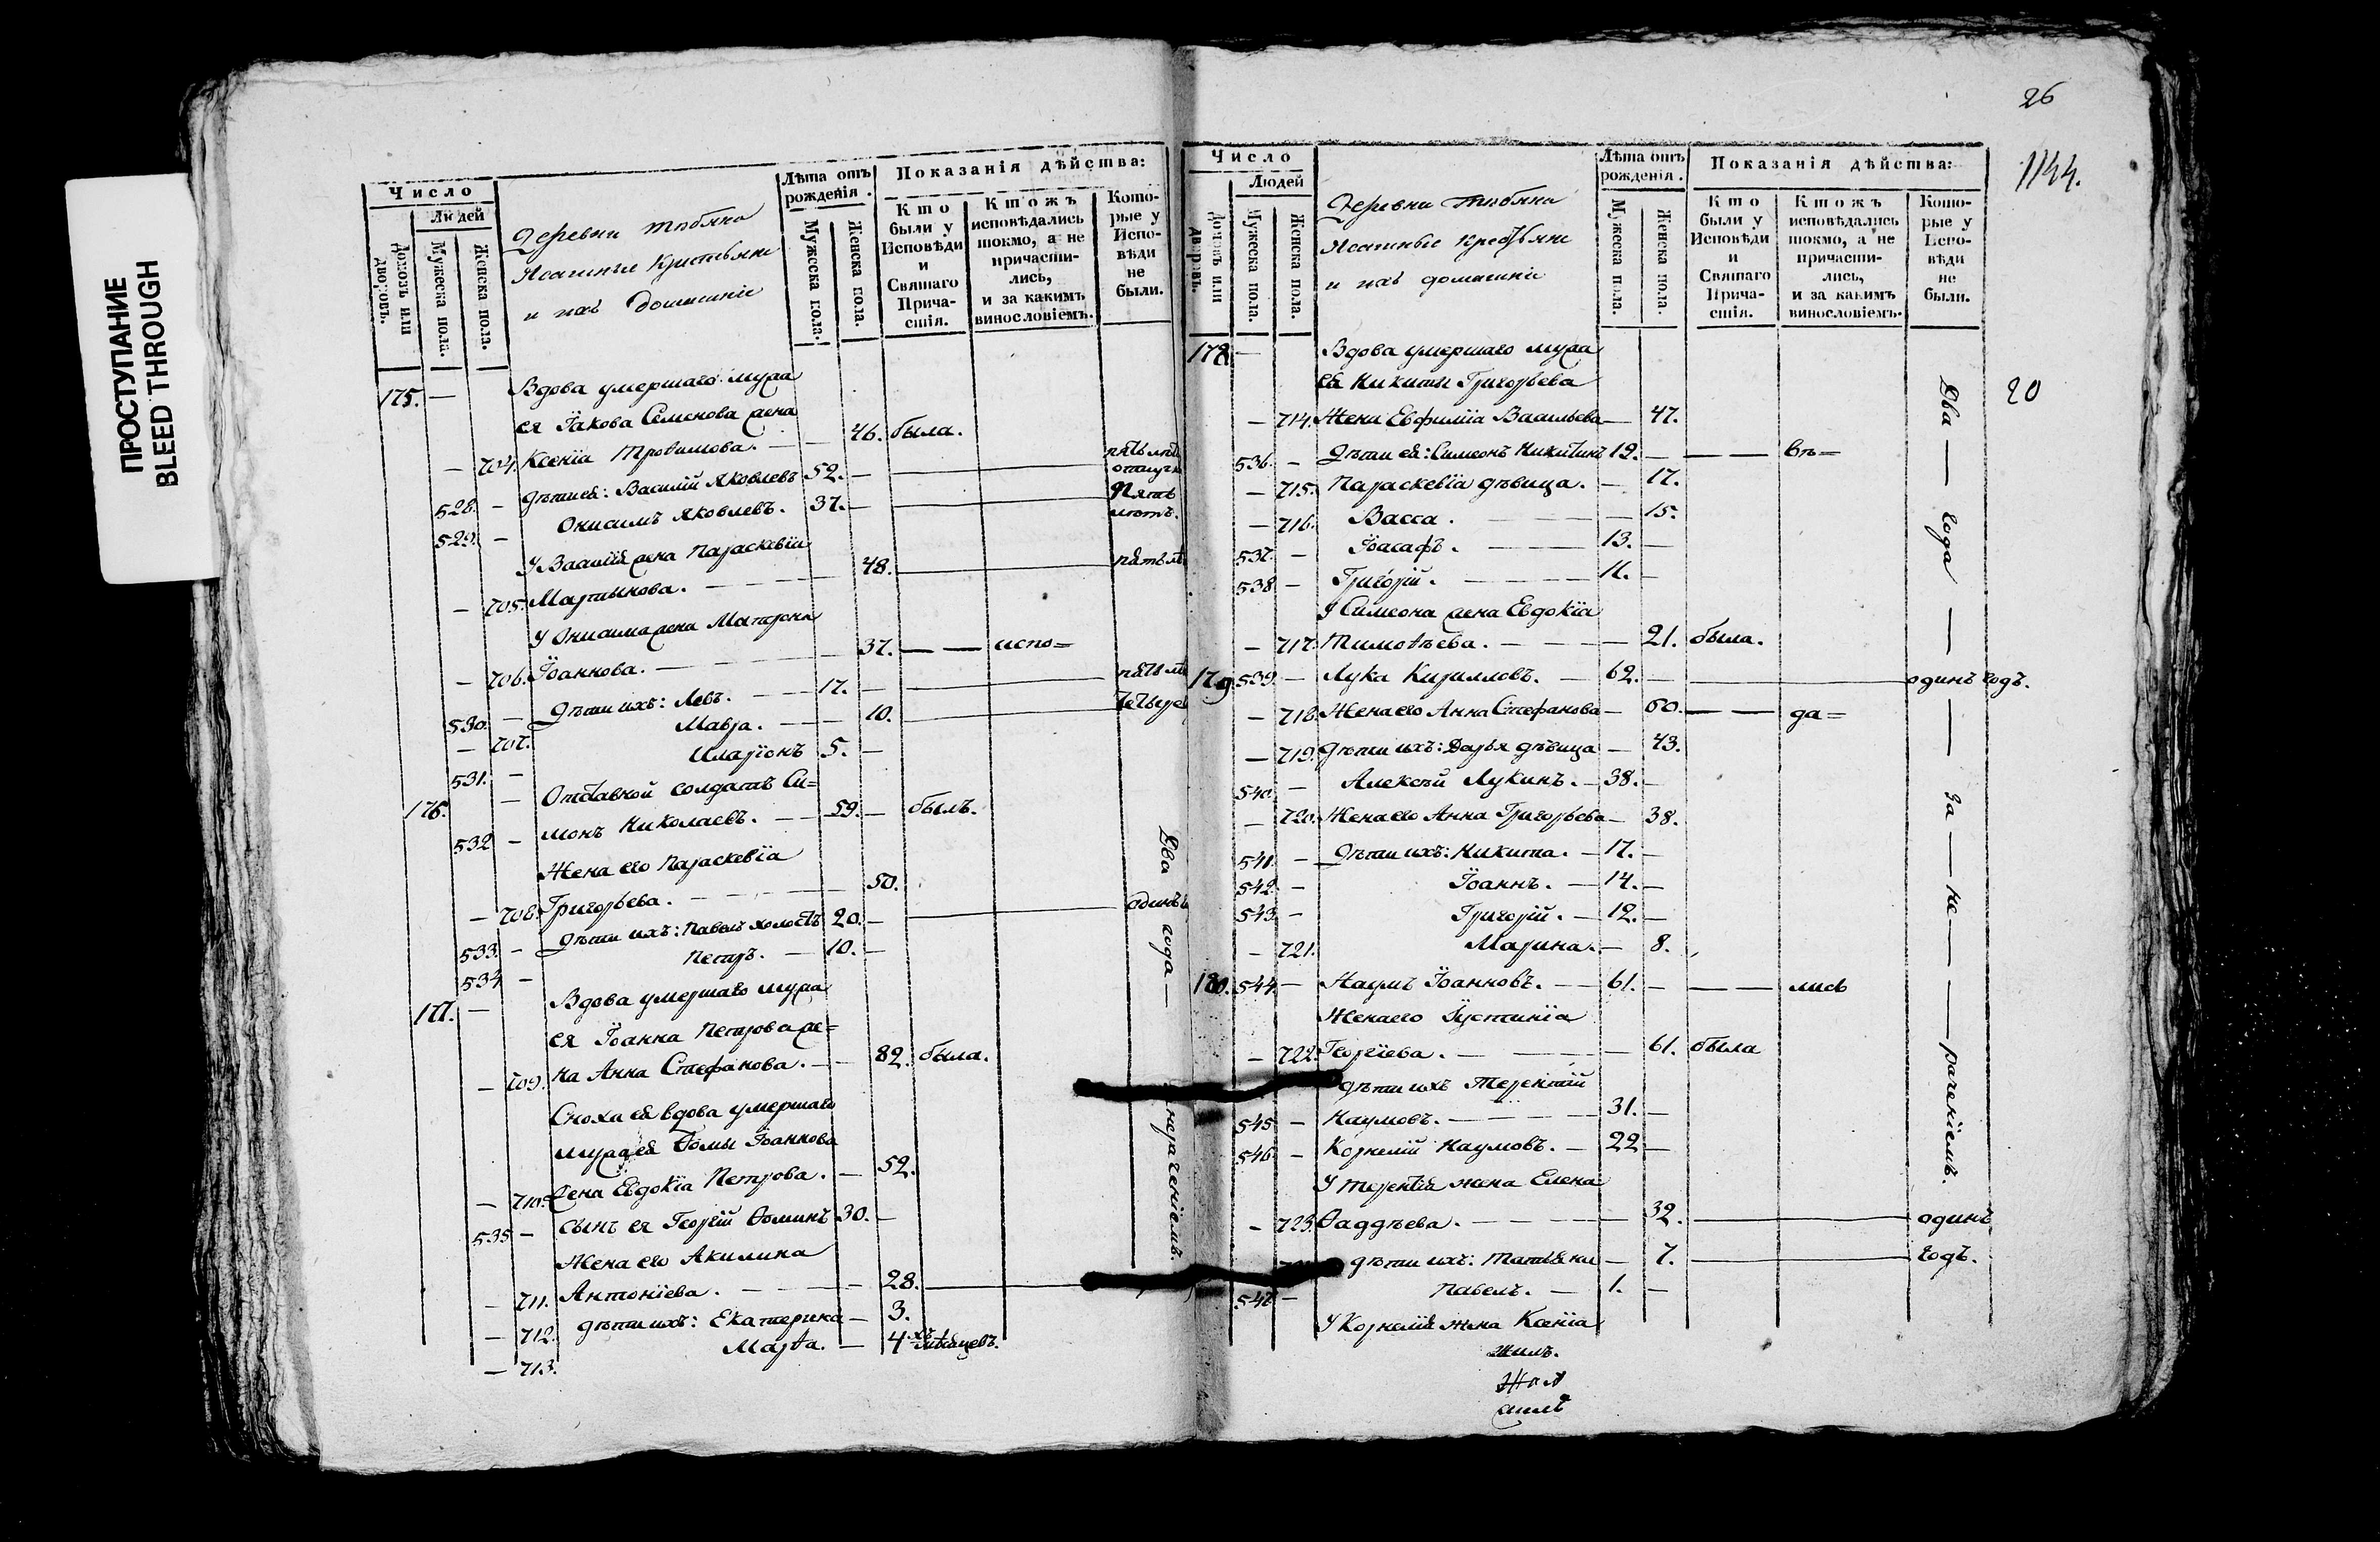 ПРОСТУПАНИЕ
BLEED THROUGH
Число
Людей
Домовъ или дворовъ.
Мужеска пола.
Женска пола.
Деревни
Ясашные
и ихъ Домашніе
Лѣта отъ рожденія.
Мужеска пола.
Женска пола.
Показанія дѣйства:
Кто были у Исповѣди и Святаго Причастія.
Ктожъ исповѣдались токмо, а не причастились, и за какимъ винословіемъ.
Которые у Исповѣди не были.
175. — Вдова умершаго мужа
ея Іакова Семенова жена
— 704. Ксенїа Трофимова. — — 46. была.
528. — дѣти ея: Василій Яковлевъ 52. —
529. — Онисимъ Яковлевъ. 37. — Пять лѣтъ.
У Василія жена Параскевїа
— 705. Мартынова. — 48.
У Онисима жена Матрона
— 706. Іоаннова. — 37. — — испо=
530. — Дѣти ихъ: Левъ. — 17. —
— 707. Мавра. — 10.
531. — Иларїонъ 5. —
176. — Отставной солдатъ Си=
532 — монъ Николаевъ. — 59. — былъ.
Жена его Параскевїа
— 708. Григорьева. — 50.
533. — Дѣти ихъ: Павелъ холостъ 20. —
534 — Петръ. — 10. —
177. — Вдова умершаго мужа
ея Іоанна Петрова же=
— 709. на Анна Стефанова. — — 82. была.
Сноха ея вдова умершаго
мужа ея Ѳомы Іоаннова
— 710. жена Евдокїа Петрова. — 52.
535 — сынъ ея Георгій Ѳоминъ 30. —
Жена его Акилина
— 711. Антонїева. — 28.
— 712. дѣти ихъ: Екатерина — 3.
— 713. Марѳа. — 4хъ мѣсяцевъ.
Два года — нераченїемъ.
26
1144.
20
Число
Людей
Домовъ или дворовъ.
Мужеска пола.
Женска пола.
Деревни
Ясашные
и ихъ домашніе
Лѣта отъ рожденія.
Мужеска пола.
Женска пола.
Показанія дѣйства:
Кто были у Исповѣди и Святаго Причастія.
Ктожъ исповѣдались токмо, а не причастились, и за какимъ винословіемъ.
Которые у Исповѣди не были.
178. — Вдова умершаго мужа
ея Никиты Григорьева
— 714. Жена Евфимїа Васильева — 47.
536. — Дѣти ея: Симеонъ Никитинъ 19. — — — вѣ=
— 715. Параскевїа дѣвица. — 17.
— 716. Васса. — — 15.
537. — Іоасафъ. — 13. —
538 — Григорій. — 11. —
У Симеона жена Евдокїа
— 717. Тимоѳѣева. — — 21. была.
179. 539. — Лука Кирилловъ. — 62. — одинъ годъ.
— 718. Жена его Анна Стефанова — 60. — — да=
— 719. Дѣти ихъ: Дарья дѣвица — 43.
540. — Алексѣй Лукинъ. — 38. —
— 720. Жена его Анна Григорьева — 38.
541. — Дѣти ихъ: Никита. — 17. —
542. — Іоаннъ. — 14. —
543. — Григорій. — 12. —
— 721. Марина. — 8.
180. 544. — Наумъ Іоанновъ. — 61. — — — лись
Жена его Іустинїа
— 722. Георгїева. — — 61. была
Дѣти ихъ Терентій
545 — Наумовъ. — 31. —
546. — Корнилій Наумовъ. — 22 —
У Терентїя жена Елена
— 723. Ѳаддѣева. — — 32. — одинъ
дѣти ихъ: Татьяна — 7. — годъ.
547. — Павелъ. — 1. —
У Корнилїя жена Ксенїа
Два — года — за — не — раченїемъ.